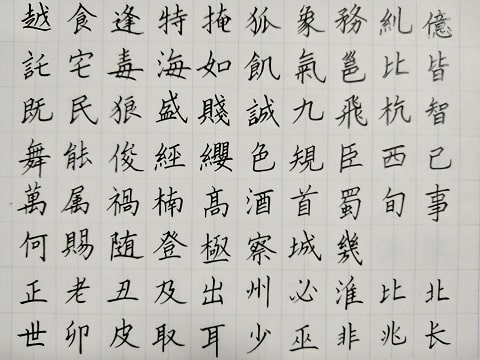 越食逢特掩狐象務糾億
託宅毒海如飢氣邕比皆
既民狼盛賤誠九飛杭智
舞能俊經纓色規臣西己
萬属禍楠高酒首蜀旬事
何賜随登極察城幾
正老丑及出州必淮比北
世卯皮取耳少巫非兆长